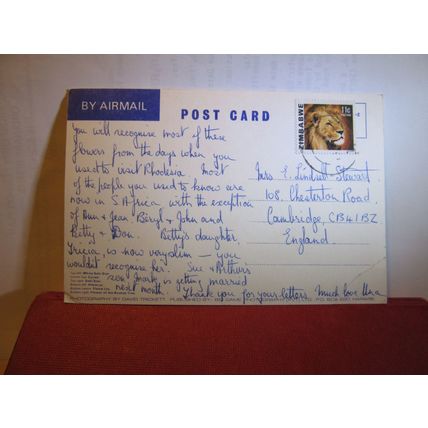 BY AIRMAIL
POST CARD
11c
ZIMBABWE
You will recognise most of these
flowers from the days when you
used to visit Rhodesia. Most
of the people you used to know are
now in S. Africa with the exception
of Mum & Jean Beryl & John and
Betty & Don. Betty's daughter,
Tricia, is now very slim — you
wouldn't recognise her. Sue & Arthur's
son Mark is getting married
next month. Thank you for your letters. Much love
Mrs. E. Lindsell-Stewart
108, Chesterton Road
Cambridge, CB4 1BZ
England.
PHOTOGRAPHY BY DAVID TRICKETT PUBLISHED BY